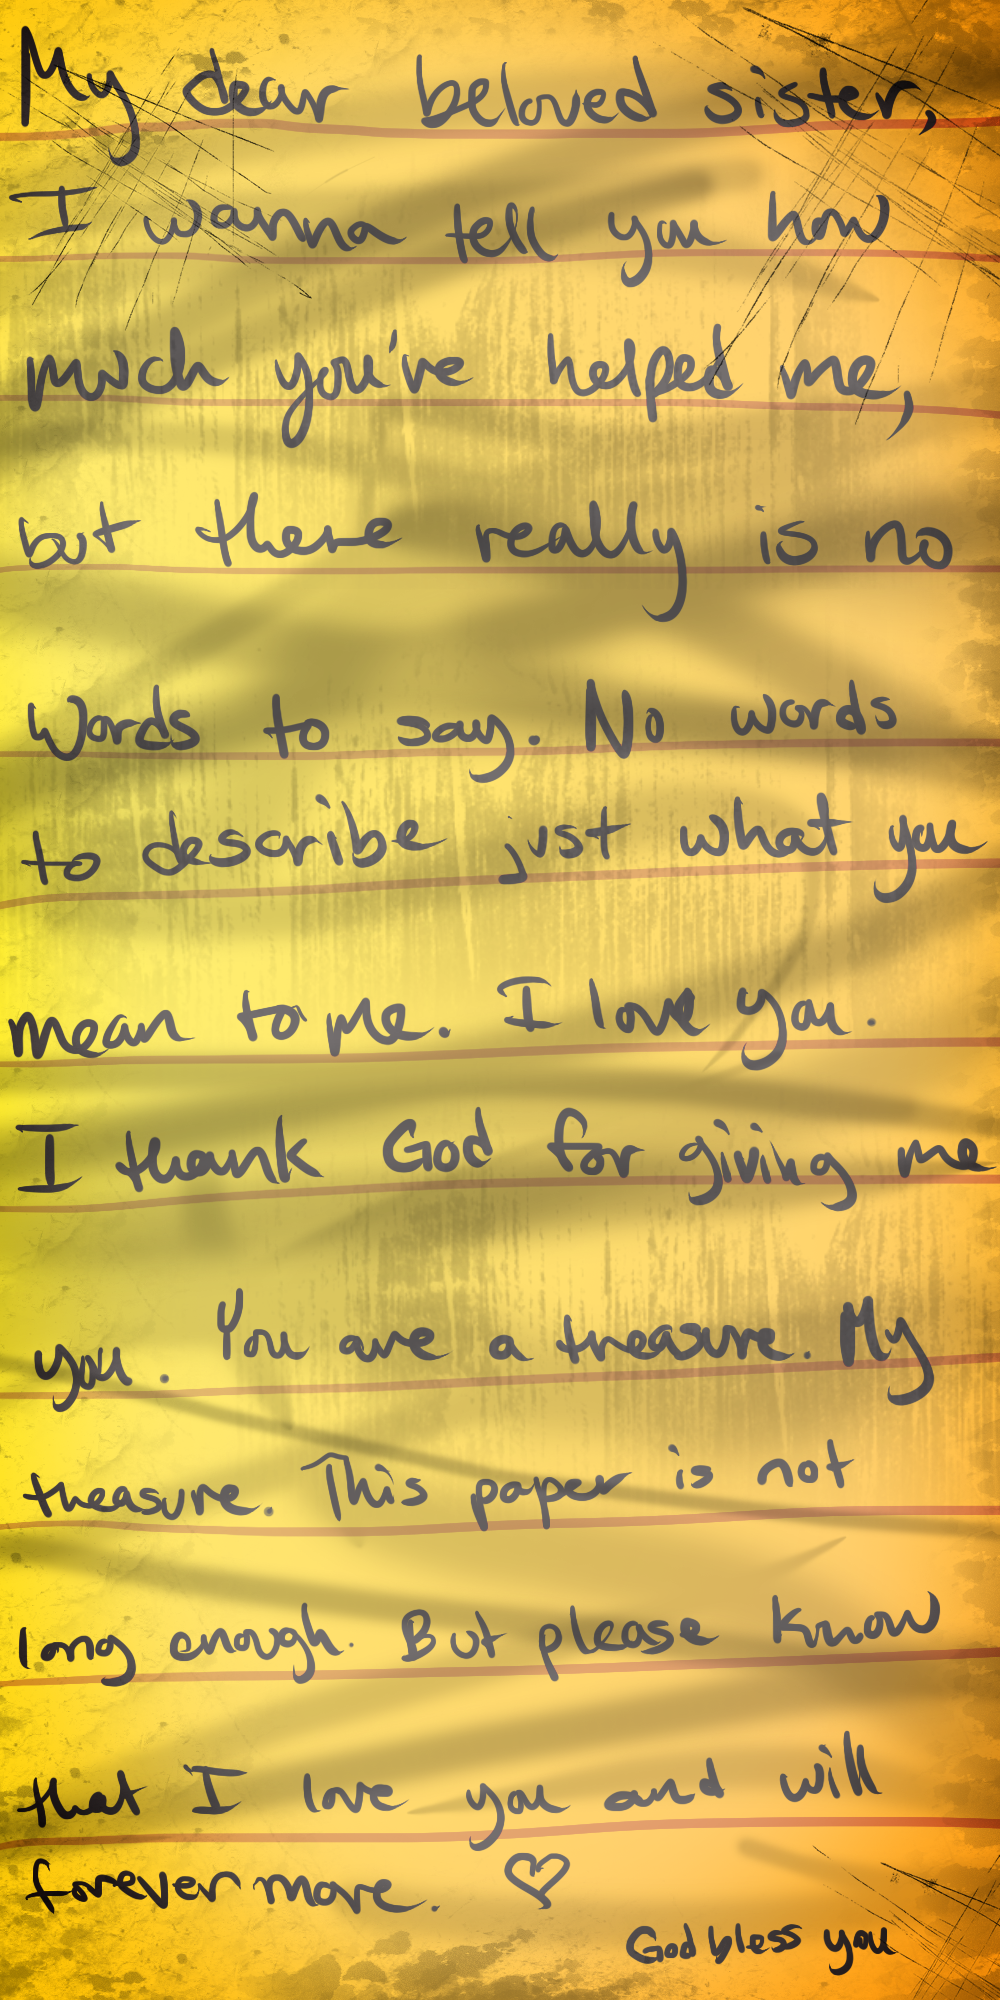 My dear beloved sister,
I wanna tell you how
much you've helped me,
but there really is no
words to say. No words
to describe just what you
mean to me. I love you.
I thank God for giving me
you. You are a treasure. My
treasure. This paper is not
long enough. But please know
that I love you and will
forever more. ♡
God bless you